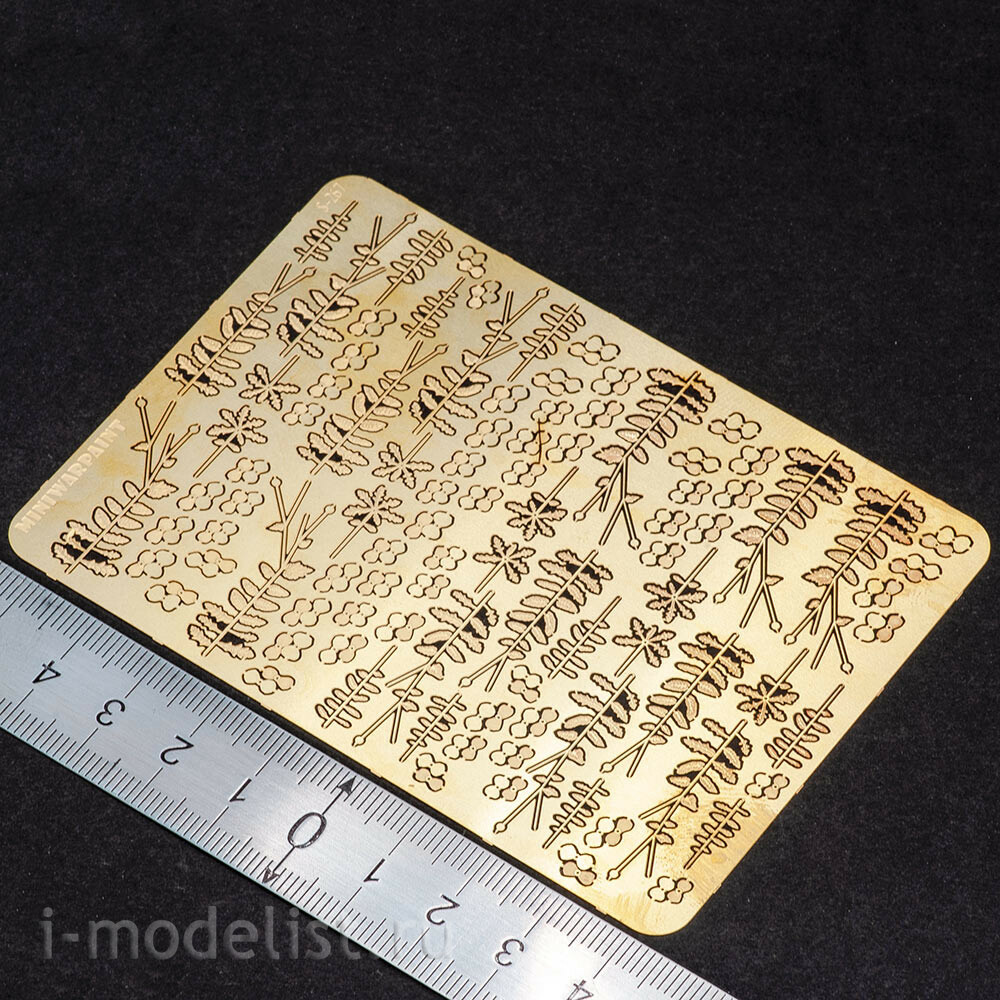 S-267
MINIWARPAINT
4 3 2 1 0 1 2 3 4
i-modelist.ru